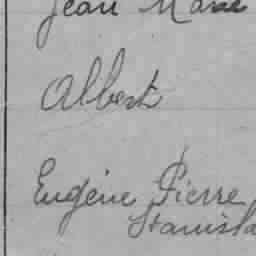 Jean Marie
Albert
Eugène Pierre
Stanisla